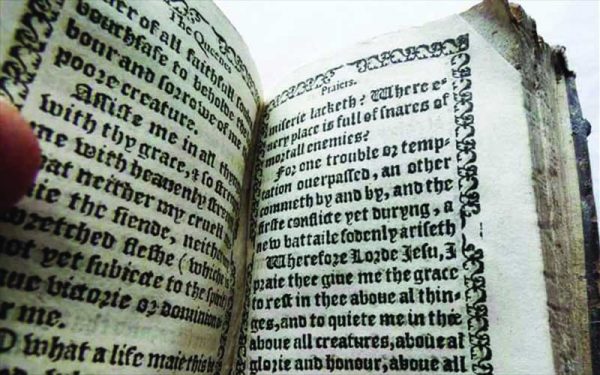 The Queen
of all faithfull
vouchsafe to beholde the
bour and sorrowe of
poore creature.
Assiste me in all
with thy grace, & so
me with heauenly
neither my cruell
the fiende, neither
wretched fleshe (which is
not yet subiecte to the
victorie or
me.
O what a life maie this be
Praiers.
miserie lacketh? Where e-
uery place is full of snares of
mortall enemies?
For one trouble or temp-
tation ouerpassed, an other
commeth by and by, and the
firste conflicte yet duryng, a
new battaile sodenly ariseth
Wherefore Lorde Jesu, I
praie thee giue me the grace
to rest in thee aboue al thin-
ges, and to quiete me in thee
aboue all creatures, aboue al
glorie and honour, aboue all